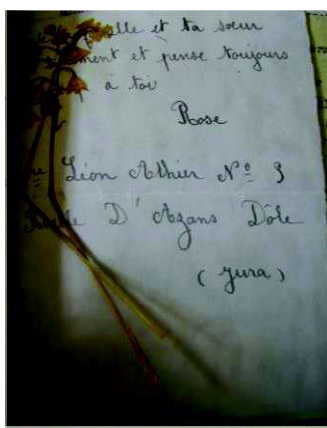 elle et ta sœur
ment et pense toujours
à toi
Rose
Léon Athier Nº 9
D'Azans Dôle
(Jura)